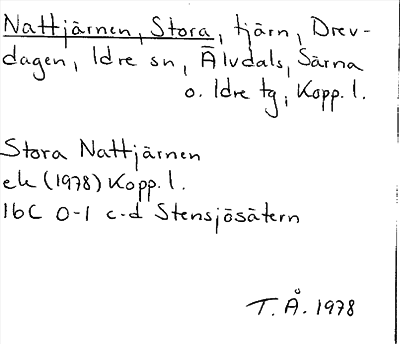 Nattjärnen, Stora, tjärn, Drev-
dagen, Idre sn, Älvdals, Särna
o. Idre tg, Kopp. l.
Stora Nattjärnen
ek (1978) Kopp. l.
16C 0-1 c-d Stensjösätern
T. Å. 1978